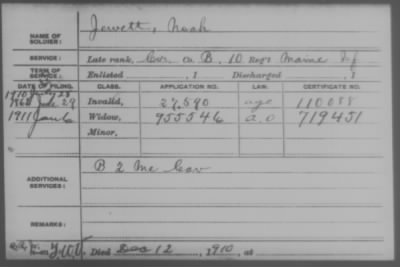 NAME OF SOLDIER: Jewett, Noah
SERVICE: Late rank, Cor. Co B, 10 Reg't Maine Inf
TERM OF SERVICE: Enlisted , 1 Discharged , 1
DATE OF FILING. CLASS. APPLICATION NO. LAW. CERTIFICATE NO.
1910 July 28
June 29 Invalid, 27,590 age 110088
1911 Jan 6 Widow, 955546 a.o 719451
Minor,
ADDITIONAL SERVICES: B 2 Me Cav
REMARKS:
Died Dec 12, 1910, at